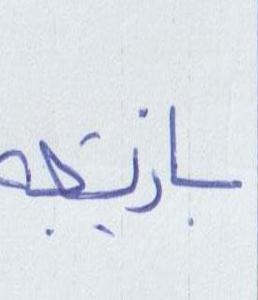 بازیتچه